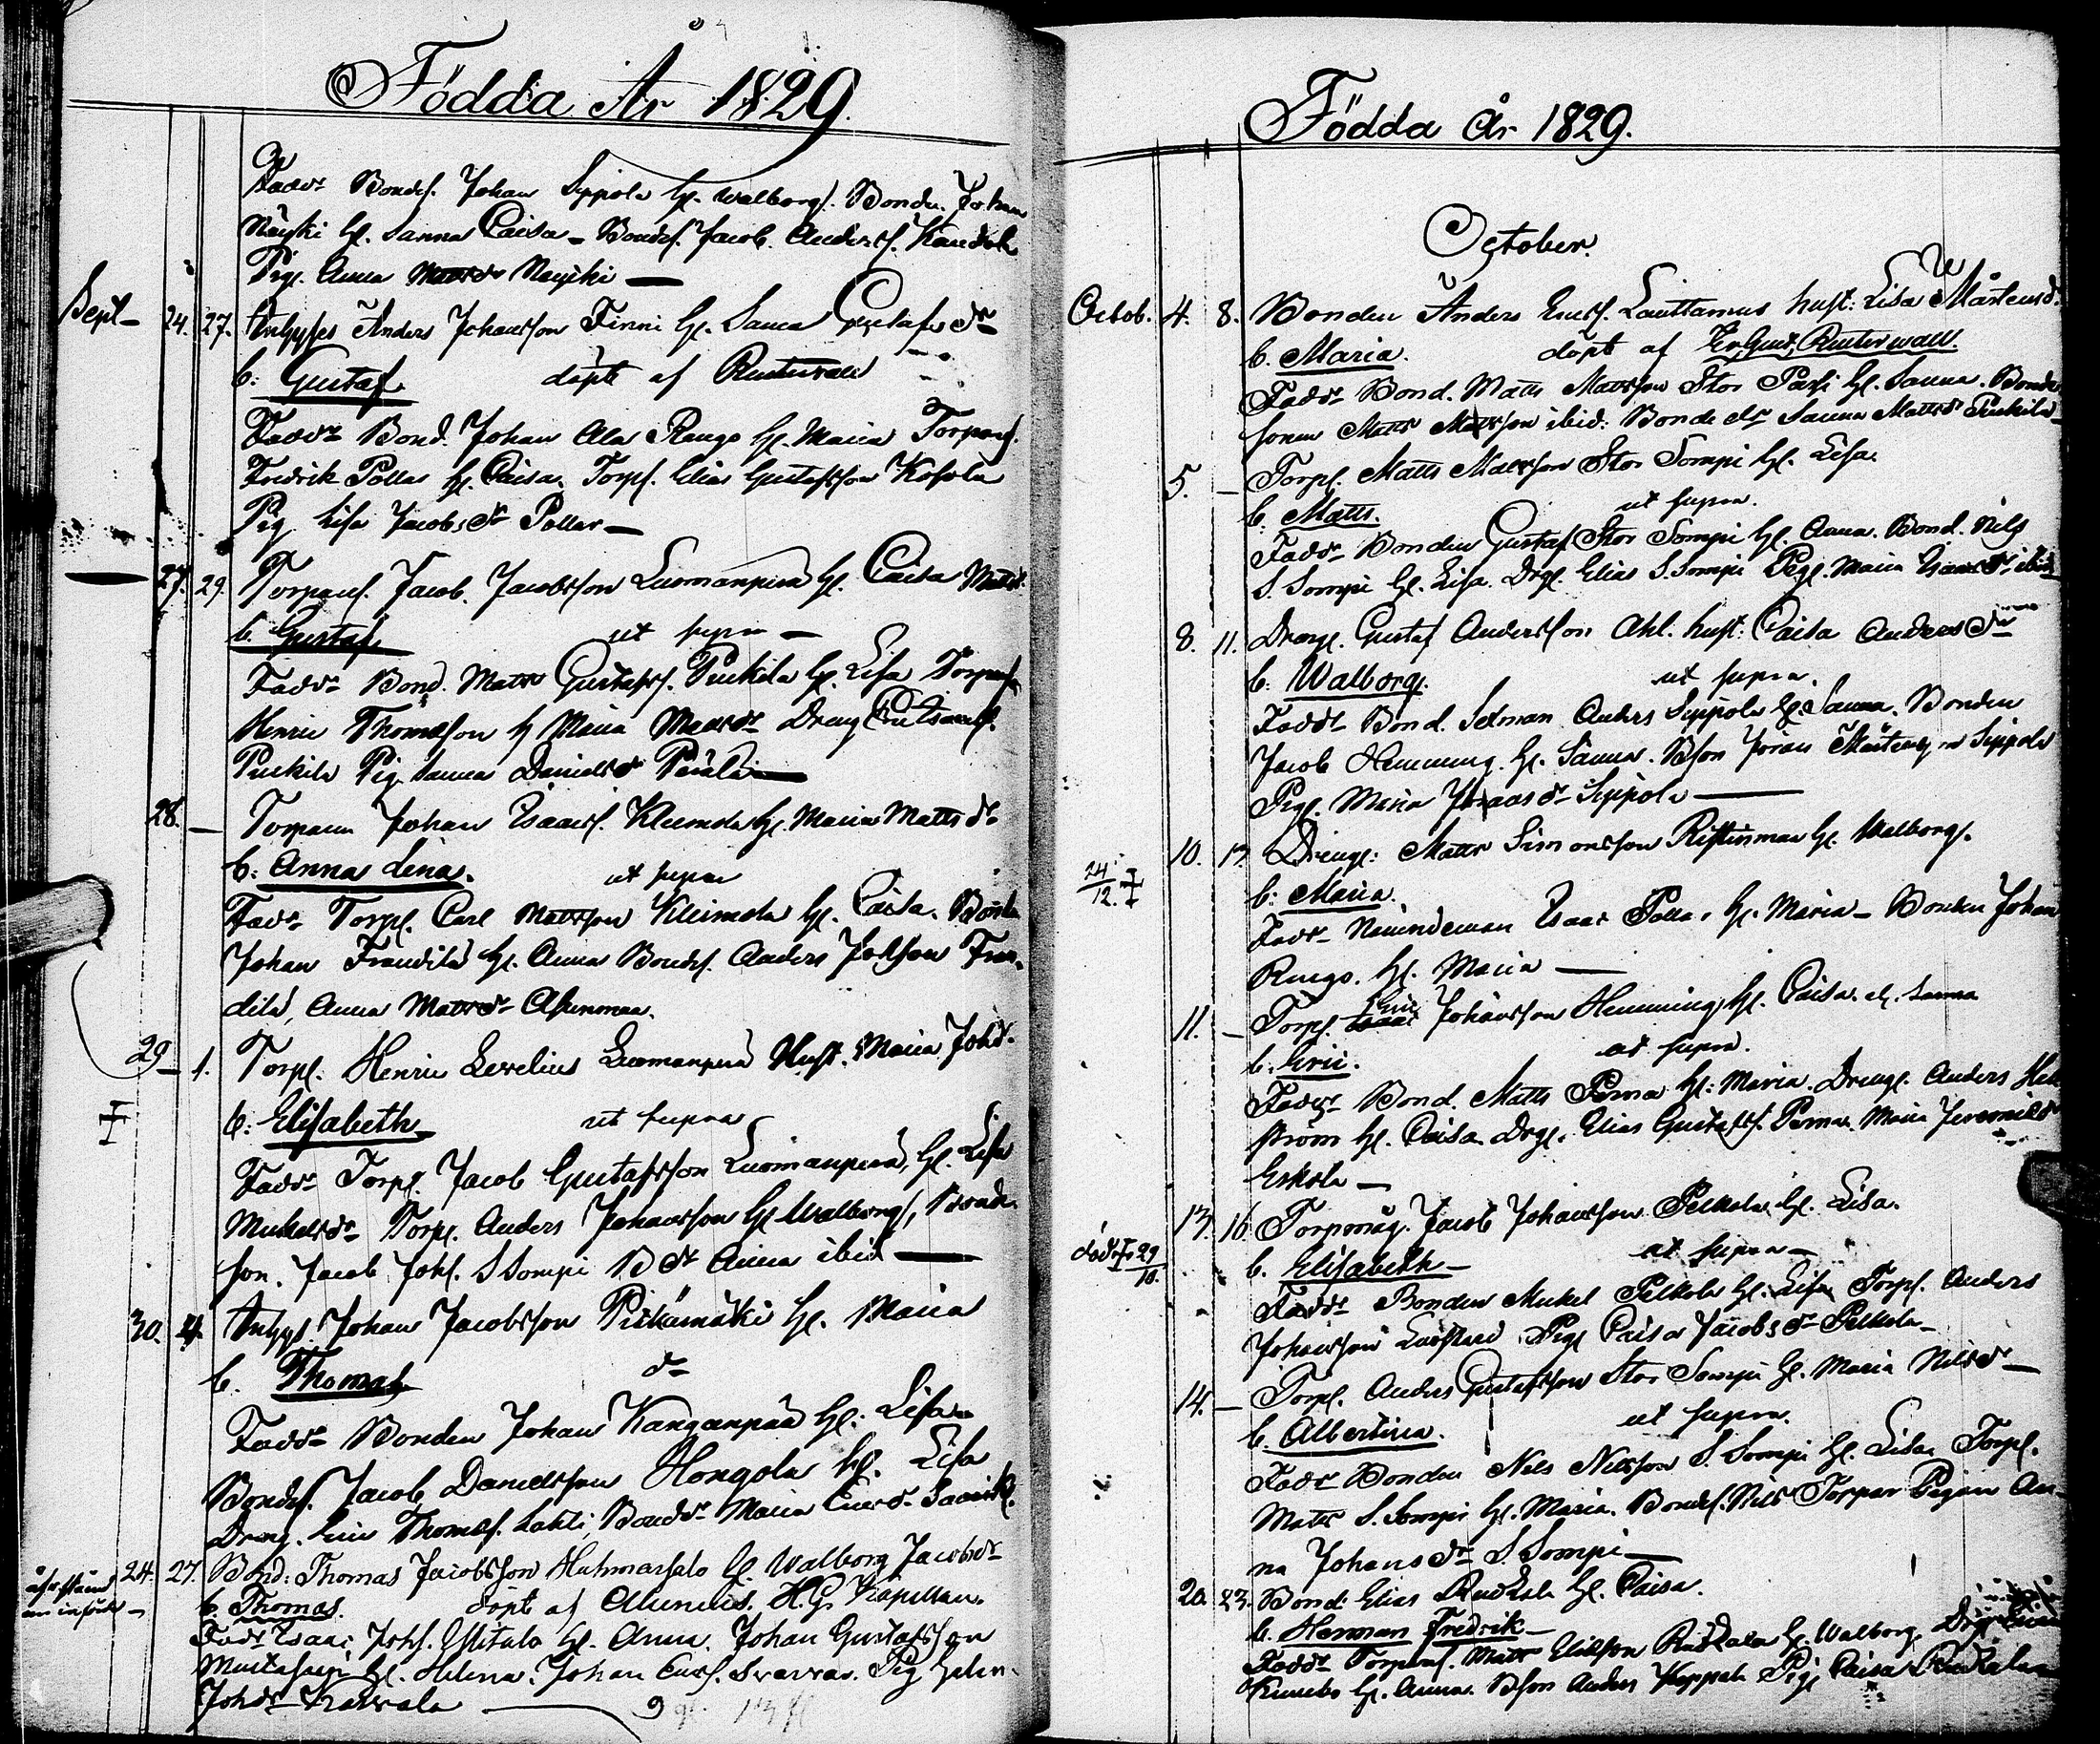 Födda År 1829.
Faddr Bondes. Johan Sippola H. Walborg. Bonden Johan
Näyki H. Sanna Caisa - Bondes. Jacob Anders.
Pig. Anna Mattsdr Nayki —
Sept - 24. 27. Inhyses Anders Johansson Finni H. Sanna Gustafsdr
b: Gustaf döpt af Reuterwall
Faddr Bond. Johan Ala Rango H. Maria Torpares.
Fredrik Pollar H. Caisa, Torps. Elias Gustafsson Kosola
Pig Lisa Jacobsdr Pollar —
— 27. 29. Torpares. Jacob Jacobsson Luomanperä H. Caisa Mattsd.
b. Gustaf ut supra —
Faddr Bond. Matts Gustafss. Puckila H. Lisa Torparen
Henric Thomasson H Maria Mattsdr Dreng
Puckila Pig Sanna Danielsdr
28. — Torparen Johan Isaacs. Kleemola H. Maria Mattsdr
b: Anna Lena. ut supra
Faddr Torp. Carl Mattsson Kleemola H. Caisa. Bonden
Johan Frandila H. Anna Bondes. Anders Johsson Fran-
dila, Anna Mattsdr
29 — 1. Torp. Henric Levelius Luomanperä Hust. Maria Johsd.
b: Elisabeth ut supra
Faddr Torp. Jacob Gustafsson Luomanperä, H. Lisa
Mickelsdr Torp. Anders Johansson H Walborg, Bonde
son. Jacob Johs. S Sompi B dr Anna ibid —
30. 4. Inhys. Johan Jacobsson Pitkämäki H. Maria
b. Thomas dr
Faddr Bonden Johan Kanganpää H: Lisa
Bondes. Jacob Danielsson Hongola H. Lisa
Dreng. Eric Thomass. Lahti, Bondr Maria Ericsdr
24. 27. Bond: Thomas Jacobsson Huhmarsalo H. Walborg Jacobsdr
b. Thomas. döpt af Alcenius. H.G. Kapellan.
Faddr Isaac Johs. H. Anna. Johan Gustafsson
H. Helena. Johan Ericss. Pig Helen.
Johsdr
Födda År 1829.
October.
Octob. 4. 8. Bonden Anders Ericss. Lauttamus hust: Lisa Mårtensdr
b. Maria. döpt af Reuterwall.
Faddr Bond. Matts Mattsson Stor Pasi H. Sanna. Bonde
sonen Matts Mattsson ibid: Bonde dr Sanna Mattsdr Puckila
5. — Torp. Matts Mattsson Stor Sompi H. Lisa.
b. Matts. ut supra.
Faddr Bonden Gustaf Stor Sompi H. Anna. Bond. Nils
S. Sompi H. Lisa. Drg. Elias S. Sompi Pige. Maria Isaacsdr ibid
8. 11. Dreng. Gustaf Andersson Ahl. hust: Caisa Andersdr
b: Walborg. ut supra.
Faddr Bond. Anders Sippola H. Sanna. Bonden
Jacob Hemming. H. Sanna. Bson Jöran Mårtensson Sippola
Pige. Maria Sippola —
24/12. 10. 17. Drenge: Matts Simonsson Ristinmaa H. Walborg.
b: Maria.
Faddr Nämndeman Isaac Pollar H. Maria - Bonden Johan
Rango. H. Maria —
11. — Torp. Eric Johansson Hemming, H. Caisa
b: Eric. ut supra.
Faddr Bond. Matts Perna H: Maria. Drenge. Anders
ström H. Caisa. Drge. Elias Gustafss. Perna. Maria Jeremiedr
Eskola —
13. 16. Torpmåg. Jacob Johansson Pelkola, H. Lisa.
29/10. b. Elisabeth — ut supra —
Faddr Bonden Mickel Pelkola H. Lisa Torp. Anders
Johansson Pige Caisa Jacobsdr Pelkola —
14. — Torp. Anders Gustafsson Stor Sompi H. Maria Nilsdr —
b. Albertina. ut supra.
Faddr Bonden Nils Nilsson S. Sompi H. Lisa, Torp.
Matts S. Sompi H. Maria. Bondes. Nils Torpar Pigan An-
na Johansdr S. Sompi —
20. 23. Bond: Elias Ruokala H. Caisa.
b. Herman Fredrik —
Faddr Torpares. Matts Eliasson Ruokala H. Walborg,
H. Anna. Bson Anders Pige Caisa Ruokala